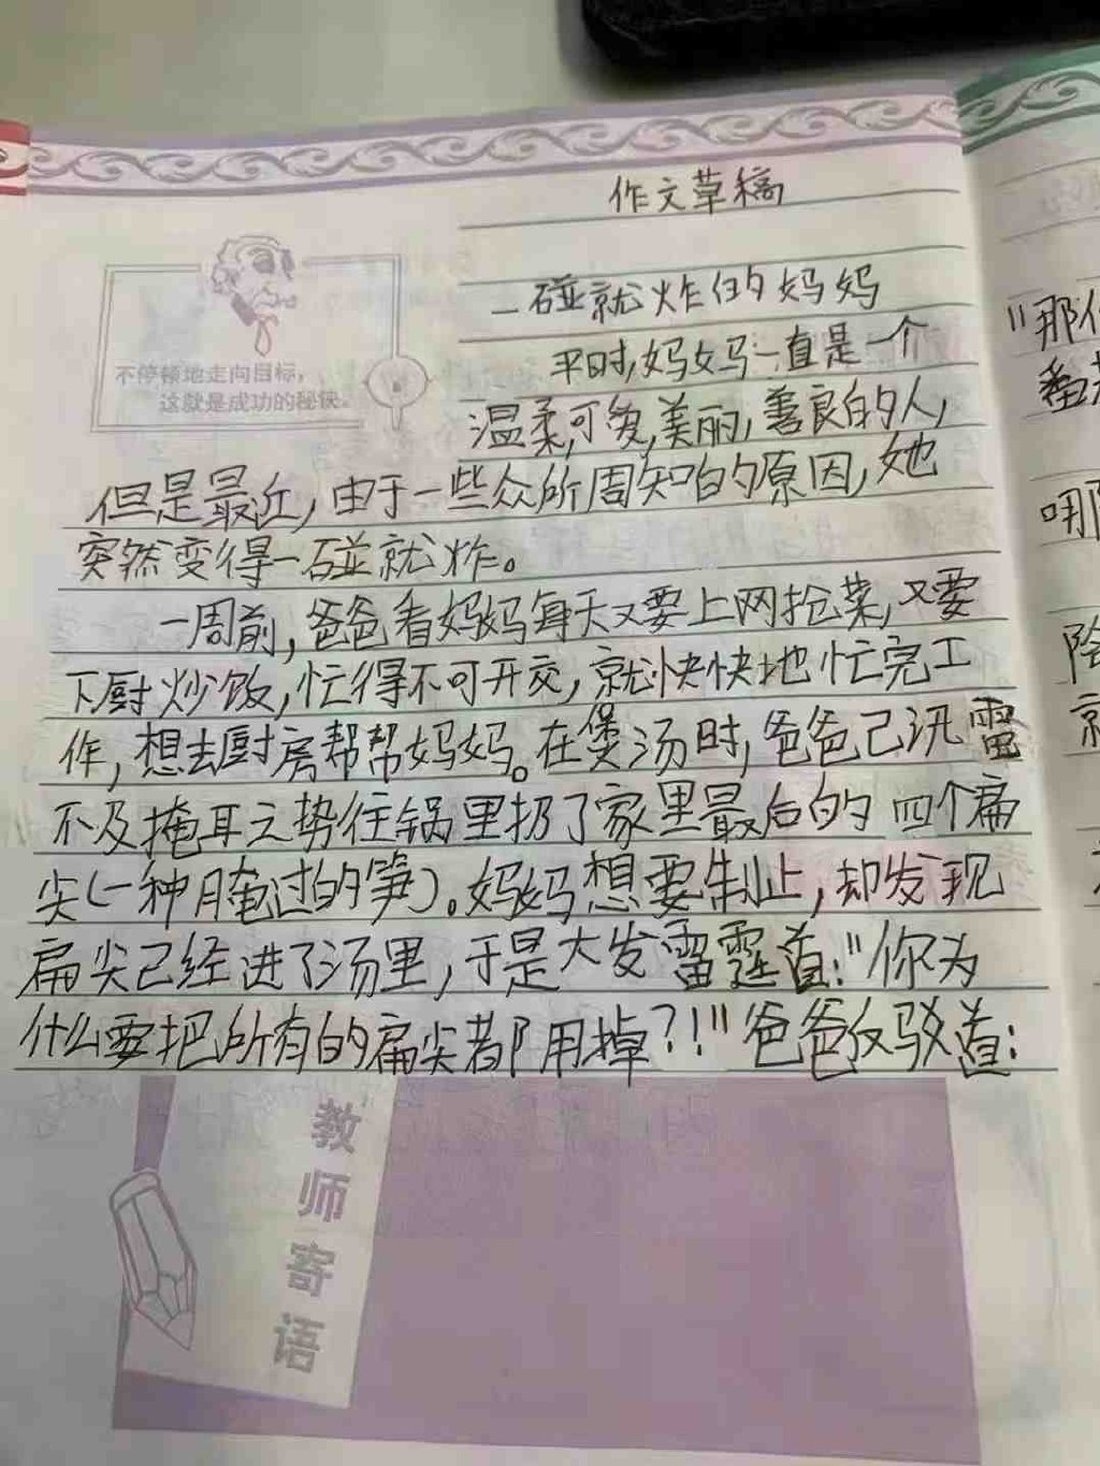 作文草稿
一碰就炸的妈妈
平时,妈妈一直是一个
温柔,可爱,美丽,善良的人,
不停顿地走向目标,
这就是成功的秘诀。
但是最近,由于一些众所周知的原因,她
突然变得一碰就炸。
一周前,爸爸看妈妈每天又要上网抢菜,又要
下厨炒饭,忙得不可开交,就快快地忙完工
作,想去厨房帮帮妈妈。在煲汤时,爸爸已汛雷
不及掩耳之势往锅里扔了家里最后的四个扁
尖(一种腌过的笋)。妈妈想要制止,却发现
扁尖已经进了汤里,于是大发雷霆道:"你为
什么要把所有的扁尖都用掉?!"爸爸反驳道:
教师寄语
"那
番
哪